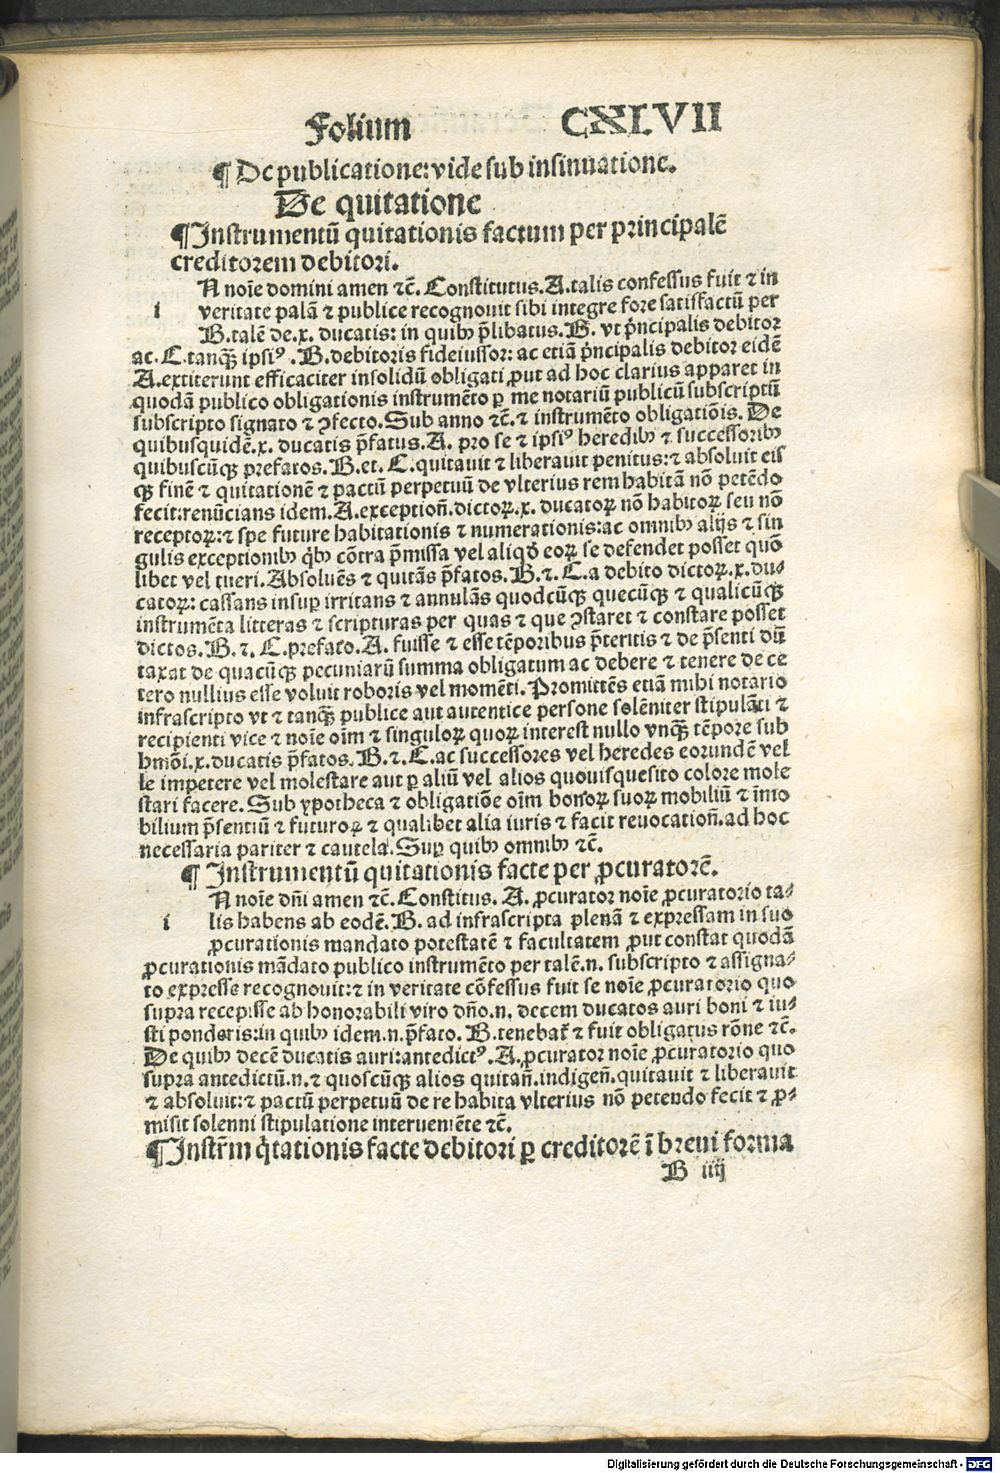 Folium CXLVII
¶ De publicatione: vide sub insinuatione.
De quitatione
¶ Instrumentū quitationis factum per principalē
creditorem debitori.
N noīe domini amen ⁊c̄. Constitutus. A. talis confessus fuit ⁊ in
i veritate palā ⁊ publice recognouit sibi integre fore satisfactū per
B. talē de .x. ducatis: in quibꝯ p̄libatus. B. vt p̄ncipalis debitor
ac. C. tanqꝫ ipsiꝰ . B. debitoris fideiussor: ac etiā p̄ncipalis debitor eidē
A. extiterunt efficaciter insolidū obligati ꝓut ad hoc clarius apparet in
quodā publico obligationis instrumēto ꝑ me notariū publicū subscriptū
subscripto signato ⁊ ꝯfecto. Sub anno ⁊c̄. ⁊ instrumēto obligatiōis. De
quibusquidē .x. ducatis p̄fatus. A. pro se ⁊ ipsiꝰ heredibꝯ ⁊ successoribꝯ
quibuscūqꝫ prefatos. B. et. C. quitauit ⁊ liberauit penitus: ⁊ absoluit eis
qꝫ finē ⁊ quitationē ⁊ pactū perpetuū de vlterius rem habitā nō petēdo
fecit: renūcians idem. A. exceptioñ. dictoꝝ .x. ducatoꝝ nō habitoꝝ seu nō
receptoꝝ: ⁊ spe future habitationis ⁊ numerationis: ac omnibꝯ alijs ⁊ sin
gulis exceptionibꝯ q̄bꝯ cōtra p̄missa vel aliqd̄ eoꝝ se defendet posset quō
libet vel tueri. Absoluēs ⁊ quitās p̄fatos. B. ⁊. C. a debito dictoꝝ .x. du⸗
catoꝝ: cassans insuꝑ irritans ⁊ annulās quodcūqꝫ quecūqꝫ ⁊ qualicūqꝫ
instrumēta litteras ⁊ scripturas per quas ⁊ que ꝯstaret ⁊ constare posset
dictos. B. ⁊. C. prefato. A. fuisse ⁊ esse tēporibus p̄teritis ⁊ de p̄senti dū
taxat de quacūqꝫ pecuniarū summa obligatum ac debere ⁊ tenere de ce
tero nullius esse voluit roboris vel momēti. Promittēs etiā mihi notario
infrascripto vt ⁊ tanqꝫ publice aut autentice persone solēniter stipulāti ⁊
recipienti vice ⁊ noīe oīm ⁊ singuloꝝ quoꝝ interest nullo vnqꝫ tēpore sub
hmōi .x. ducatis p̄fatos. B. ⁊. C. ac successores vel heredes eorundē vel
le impetere vel molestare aut ꝑ aliū vel alios quouisquesito colore mole
stari facere. Sub ypotheca ⁊ obligatiōe oīm bonoꝝ suoꝝ mobiliū ⁊ īmo
bilium p̄sentiū ⁊ futuroꝝ ⁊ qualibet alia iuris ⁊ facit reuocatioñ. ad hoc
necessaria pariter ⁊ cautela. Suꝑ quibꝯ omnibꝯ ⁊c̄.
¶ Instrumentū quitationis facte per ꝓcuratorē.
N noīe dn̄i amen ⁊c̄. Constitus. A. ꝓcurator noīe ꝓcuratorio ta⸗
i lis habens ab eodē. B. ad infrascripta plenā ⁊ expressam in suo
ꝓcurationis mandato potestatē ⁊ facultatem ꝓut constat quodā
ꝓcurationis mādato publico instrumēto per talē .n. subscripto ⁊ assigna⸗
to expresse recognouit: ⁊ in veritate cōfessus fuit se noīe ꝓcuratorio quo
supra recepisse ab honorabili viro dn̄o .n. decem ducatos auri boni ⁊ iu⸗
sti ponderis: in quibꝯ idem .n. p̄fato. B. tenebat̄ ⁊ fuit obligatus rōne ⁊c̄.
De quibꝯ decē ducatis auri: antedictꝰ. A. ꝓcurator noīe ꝓcuratorio quo
supra antedictū .n. ⁊ quoscūqꝫ alios quitañ. indigeñ. quitauit ⁊ liberauit
⁊ absoluit: ⁊ pactū perpetuū de re habita vlterius nō petendo fecit ⁊ ꝓ⸗
misit solenni stipulatione interueniēte ⁊c̄.
¶ Instr̄m q̄tationis facte debitori ꝑ creditorē ī breui forma
B iiij
Digitalisierung gefördert durch die Deutsche Forschungsgemeinschaft - DFG